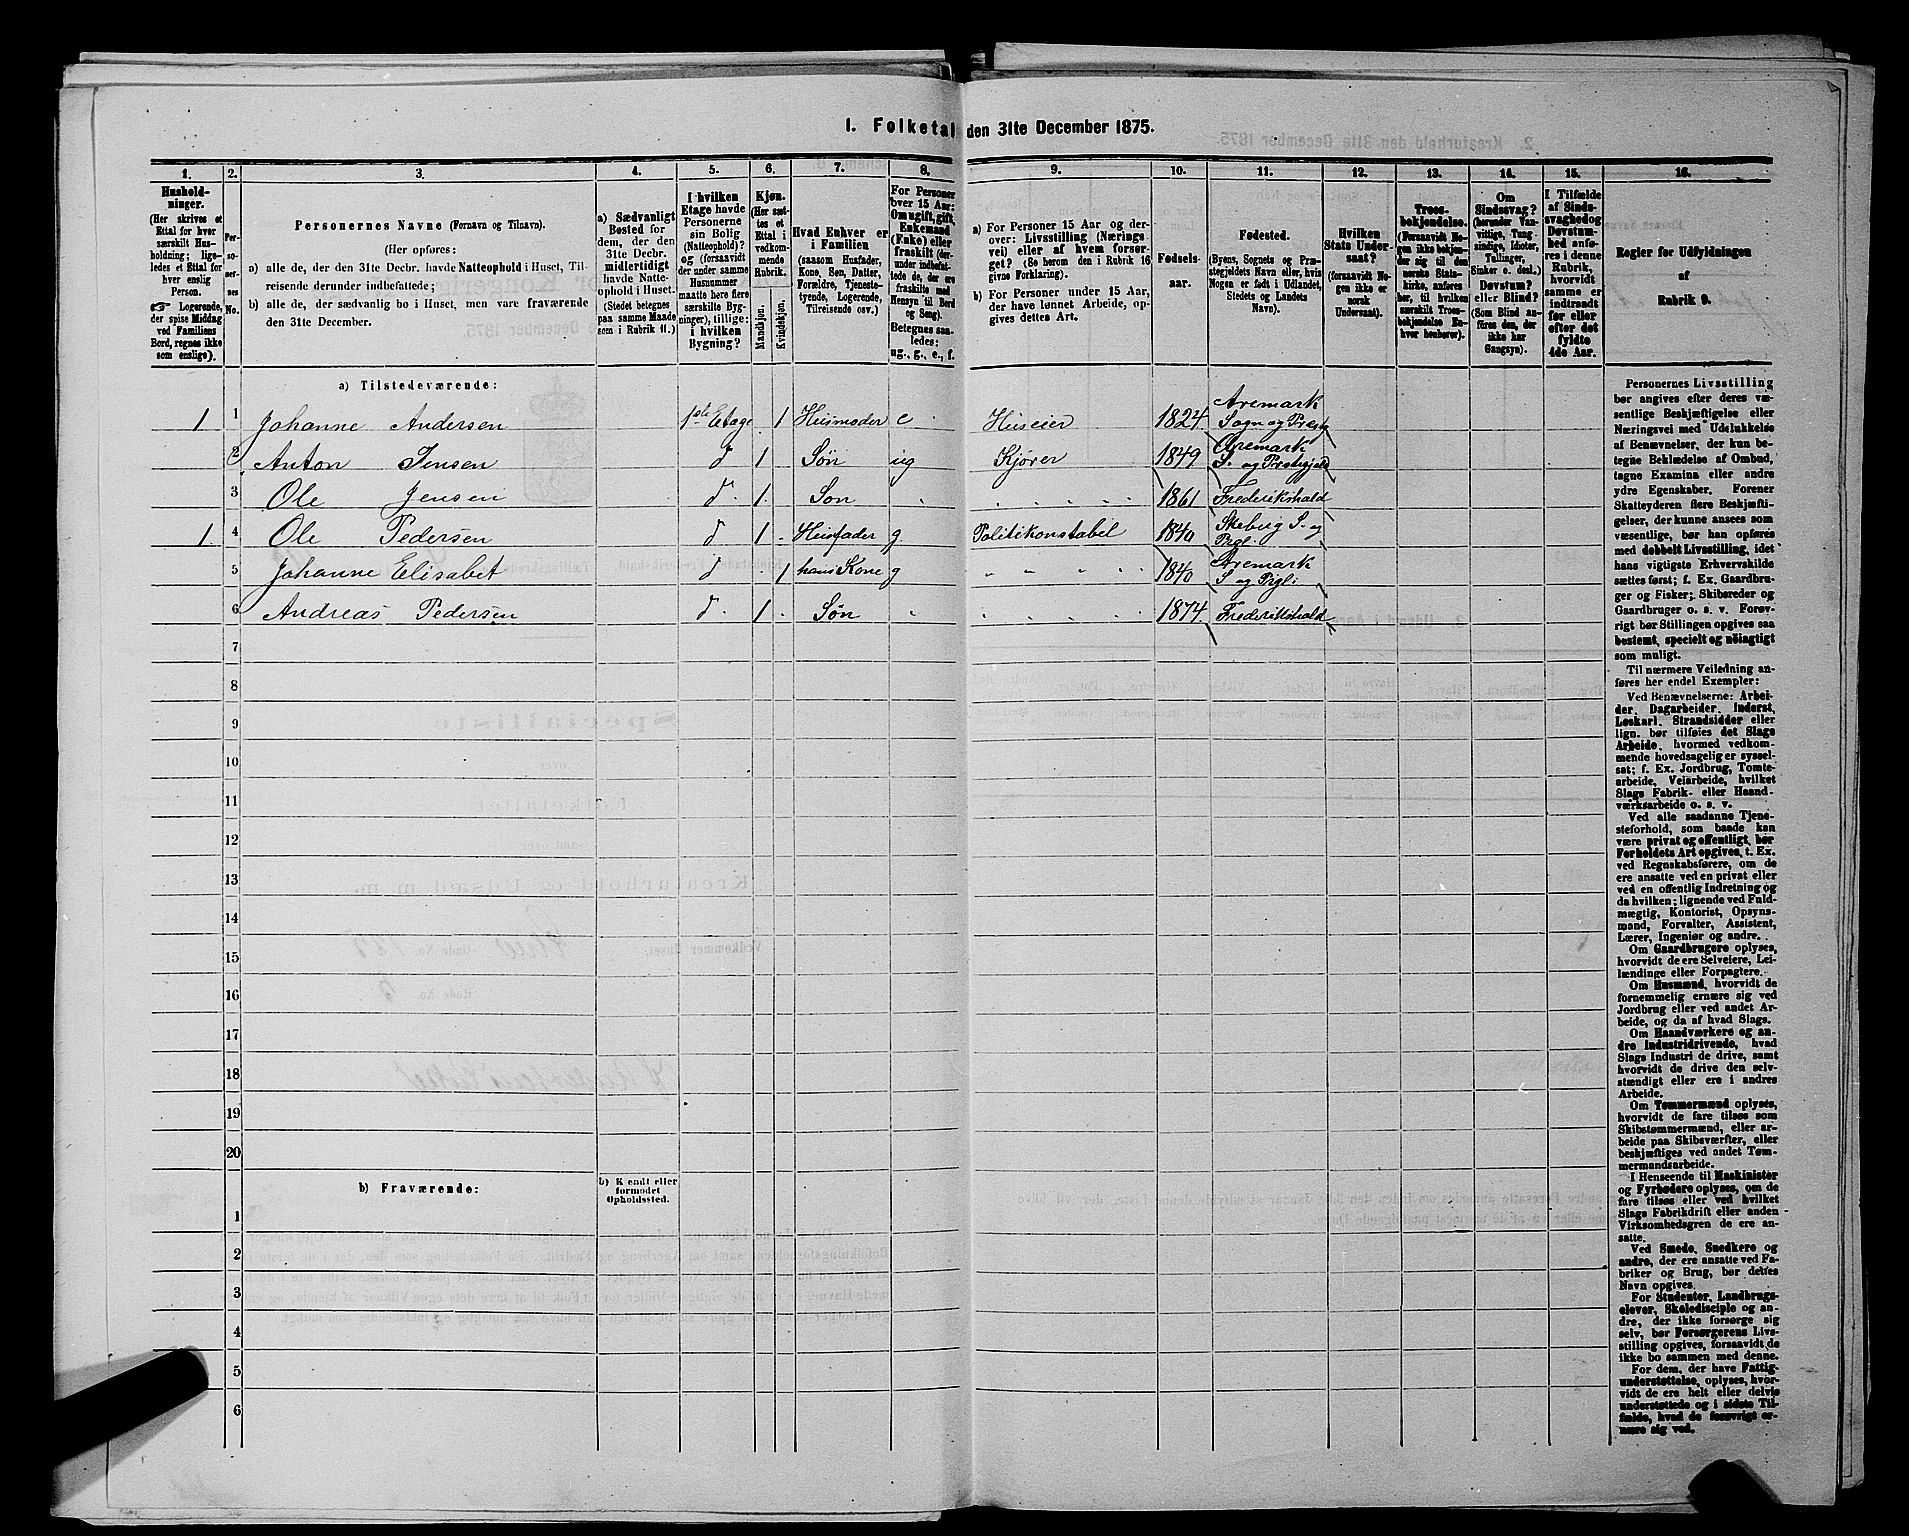 1. Folketal den 31te December 1875.
1. 2. 3. 4. 5. 6. 7. 8. 9. 10. 11. 12. 13. 14. 15. 16.
Hushold-
ninger.
(Her skrives et
Ettal for hver
særskilt Hus-
holdning; lige-
ledes et Ettal for
hver enslig
Person.
☞ Logerende,
der spise Middag
ved Familiens
Bord, regnes ikke
som enslige).
Per-
so-
ner-
nes
No.
Personernes Navne (Fornavn og Tilnavn).
(Her opføres:
a) alle de, der den 31te Decbr. havde Natteophold i Huset, Til-
reisende derunder indbefattede;
b) alle de, der sædvanlig bo i Huset, men vare fraværende
den 31te December.
a) Sædvanligt
Bosted for
dem, der den
31te Decbr.
midlertidigt
havde Natte-
ophold i Huset.
(Stedet betegnes
paa samme Maade
som i Rubrik 11.)
I hvilken
Etage havde
Personerne
sin Bolig
(Natteophold)?
og (forsaavidt
der under samme
Husnummer
maatte here flere
særskilte Byg-
ninger), tillige:
i hvilken
Bygning?
Kjøn.
(Her sæt-
tes et
Ettal i
vedkom-
mende
Rubrik.
Mandkjøn.
Kvindekjøn.
Hvad Enhver er
i Familien
(saasom Husfader,
Kone, Søn, Datter,
Forældre, Tjeneste-
tyende, Logerende,
Tilreisende osv.)
For Personer
over 15 Aar:
Om ugift, gift,
Enkemand
(Enke) eller
fraskilt (der-
under indbefat-
tede de, der ere
fraskilte med
Hensyn til Bord
og Seng).
Betegnes saa-
ledes:
ug., g., e., f.
a) For Personer 15 Aar og der-
over: Livsstilling (Nærings
vei) eller af hvem forsør-
get? (Se herom den i Rubrik 16
givne Forklaring).
b) For Personer under 15 Aar,
der have lønnet Arbeide, op-
gives dettes Art.
Fødsels-
aar.
Fødested.
(Byens, Sognets og Præ-
stegjeldets Navn eller, hvis
Nogen er født i Udlandet,
Stedets og Landets
Navn).
Hvilken
Stats Under-
saat?
(forsaavidt No-
gen ikke er
norsk
Undersaat).
Troes-
bekjendelse.
(Forsaavidt No-
gen ikke bekjen-
der sig til den
norske Stats-
kirke, anføres
her, til hvilken
særskilt Troes-
bekjendelse En-
hver henhører).
Om
Sindssvag?
(herunder Van-
vittige, Tung-
sindige, Idioter,
Tullinger,
Sinker o. desl.)
Døvstum?
eller Blind?
(Som Blind an-
føres den, der
ikke har
Gangsyn).
I Tilfælde
af Sinds-
svaghed og
Døvstum-
hed anfø-
res i denne
Rubrik,
hvorvidt
samme er
indtraadt
før eller
efter det
fyldte
4de Aar.
Regler for Udfyldningen
af
Rubrik 9.
a) Tilstedeværende:
1 1 Johanne Andersen 1ste Etage 1 Husmoder e Huseier 1824 Aremark Sogn og Præstg
2 Anton Jensen d 1 Søn ug Kjører 1849 Aremark S. og Præstegjeld
3 Ole Jensen d. 1. Søn 1861 Frederikshald
1. 4 Ole Pedersen d 1 Husfader g. Politikonstabel 1840 Skeberg S. og Pgl.
5 Johanne Elisabet d 1 hans Kone g " " " " 1840 Aremark S og Pgl:
6 Andreas Pedersen d. 1 Søn " " " " " 1874. Frederikshald
7
8
9
10
11
12
13
14
15
16
17
18
19
20
b) Fraværende:
b) Kjendt eller
formodet
Opholdssted.
1
2
3
4
5
6
Personernes Livsstilling
bør angives efter deres væ-
sentlige Beskjæftigelse eller
Næringsvei med Udelukkelse
af Benævnelser, der kun be-
tegne Beklædelse af Ombud,
tagne Examina eller andre
ydre Egenskaber. Forener
Skatteyderen flere Beskjæfti-
gelser, der kunne ansees som
væsentlige, bør han opføres
med dobbelt Livsstilling, idet
hans vigtigste Erhvervskilde
sættes først; f. Ex. Gaardbru-
ger og Fisker; Skibsreder og
Gaardbruger o. s. v. Forøv-
rigt bør Stillingen opgives saa
bestemt, specielt og nøiagtigt
som muligt.
Til nærmere Veiledning an-
føres her endel Exempler:
Ved Benævnelserne: Arbei-
der, Dagarbeider, Inderst,
Løskarl, Strandsidder eller
lign. bør tilføies det Slags
Arbeide, hvormed vedkom-
mende hovedsagelig er syssel-
sat; f. Ex. Jordbrug, Tomte-
arbeide, Veiarbeide, hvilket
Slags Fabrik- eller Haand-
værksarbeide o. s. v.
Ved alle saadanne Tjene-
steforhold, som baade kan
være privat og offentligt, bør
Forholdets Art opgives, t. Ex.
ved Regnskabsførere, om de
ere ansatte ved en privat eller
ved en offentlig Indretning og
da hvilken; lignende ved Fuld-
mægtig, Kontorist, Opsyns-
mand, Forvalter, Assistent,
Lærer, Ingeniør og andre.
Om Gaardbrugere oplyses,
hvorvidt de ere Selveiere, Lei-
lændinge eller Forpagtere.
Om Husmænd, hvorvidt de
fornemmelig ernære sig ved
Jordbrug eller ved andet Ar-
beide, og da af hvad Slags.
Om Haandværkere og an-
dre Industridrivende, hvad
Slags Industri de drive, samt
hvorvidt de drive den selv-
stændigt eller ere i andres
Arbeide.
Om Tømmermænd oplyses,
hvorvidt de fare tilsøs som
Skibstømmermænd, eller ar-
beide paa Skibsværfter, eller
beskjæftiges ved andet Tøm-
mermandsarbeide.
I Henseende til Maskinister
og Fyrbødere oplyses, om de
fare tilsøs eller ved hvilket
Slags Fabrikdrift eller anden
Virksomhedsgren de ere an-
satte.
Ved Smede, Snedkere og
andre, der ere ansatte ved Fa-
briker og Brug, bør dettes
Navn opgives.
For Studenter, Landbrugs-
elever, Skoledisciple og an-
dre, der ikke forsørge sig
selv, bør Forsørgerens Livs-
stilling opgives, forsaavidt de
ikke bo sammen med denne.
For dem, der have Fattig-
understøttelse, oplyses, hvor-
vidt de ere helt eller delvis
understøttede og i sidste Til-
fælde, hvad de forøvrigt er-
nære sig ved.